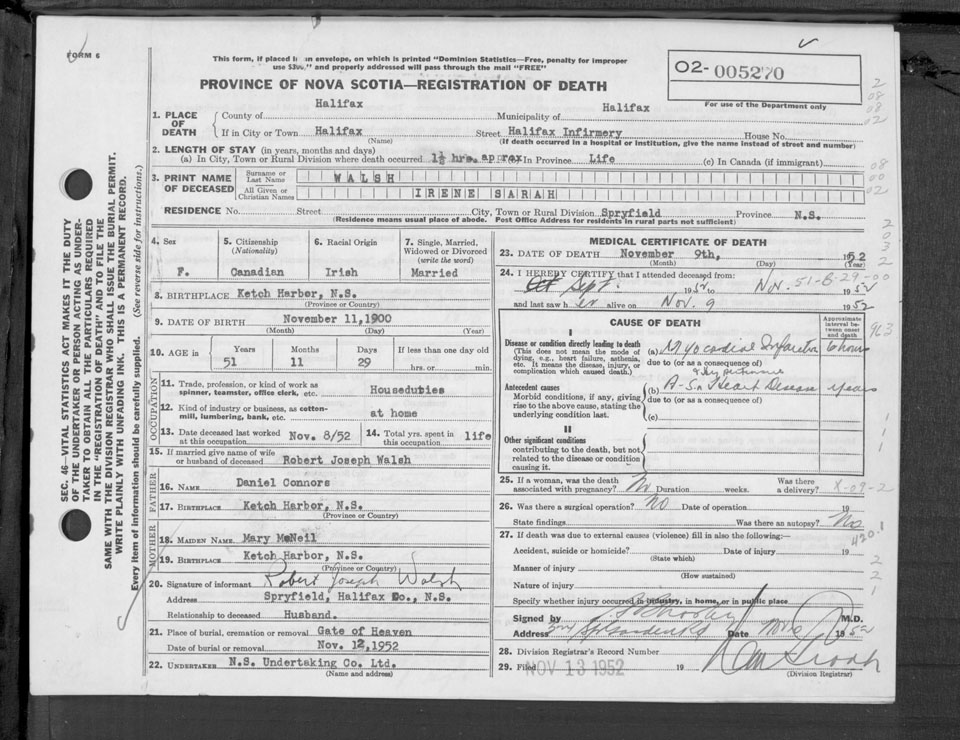 FORM 6
This form, if placed in an envelope, on which is printed "Dominion Statistics—Free, penalty for improper
use $300," and properly addressed will pass through the mail "FREE"
PROVINCE OF NOVA SCOTIA—REGISTRATION OF DEATH
02-005270
For use of the Department only
1. PLACE OF DEATH
County of Halifax Municipality of Halifax
If in City or Town Halifax Street Halifax Infirmery House No.
(Name) (If death occurred in a hospital or institution, give the name instead of street and number)
2. LENGTH OF STAY (in years, months and days)
(a) In City, Town or Rural Division where death occurred 1½ hrs. approx In Province Life (c) In Canada (if immigrant)
3. PRINT NAME OF DECEASED
Surname or Last Name WALSH
All Given or Christian Names IRENE SARAH
RESIDENCE No. Street City, Town or Rural Division Spryfield Province N.S.
(Residence means usual place of abode. Post Office Address for residents in rural parts not sufficient)
4. Sex F.
5. Citizenship (Nationality) Canadian
6. Racial Origin Irish
7. Single, Married, Widowed or Divorced (write the word) Married
8. BIRTHPLACE Ketch Harbor, N.S.
(Province or Country)
9. DATE OF BIRTH November 11,1900
(Month) (Day) (Year)
10. AGE in Years 51 Months 11 Days 29 If less than one day old hrs. or min.
OCCUPATION
11. Trade, profession, or kind of work as spinner, teamster, office clerk, etc. Houseduties
12. Kind of industry or business, as cotton-mill, lumbering, bank, etc. at home
13. Date deceased last worked at this occupation Nov. 8/52 14. Total yrs. spent in this occupation life
15. If married give name of wife or husband of deceased Robert Joseph Walsh
FATHER
16. NAME Daniel Connors
17. BIRTHPLACE Ketch Harbor, N.S.
(Province or Country)
MOTHER
18. MAIDEN NAME Mary McNeil
19. BIRTHPLACE Ketch Harbor, N.S.
(Province or Country)
20. Signature of informant Robert Joseph Walsh
Address Spryfield, Halifax Co., N.S.
Relationship to deceased Husband.
21. Place of burial, cremation or removal Gate of Heaven
Date of burial or removal Nov. 12,1952
22. UNDERTAKER N.S. Undertaking Co. Ltd.
(Name and address)
MEDICAL CERTIFICATE OF DEATH
23. DATE OF DEATH November 9th, 1952
(Month) (Day) (Year)
24. I HEREBY CERTIFY that I attended deceased from:
Sept. 1952 to Nov. 1952
51-B-29-00
and last saw her alive on Nov. 9 1952
CAUSE OF DEATH
Approximate interval between onset and death
I
Disease or condition directly leading to death
(This does not mean the mode of dying, e.g., heart failure, asthenia, etc. It means the disease, injury, or complication which caused death.)
(a) Myocardial Infarction 6 hours
due to (or as a consequence of)
Antecedent causes
Morbid conditions, if any, giving rise to the above cause, stating the underlying condition last.
(b) A-S Heart Disease years
due to (or as a consequence of)
(c)
II
Other significant conditions contributing to the death, but not related to the disease or condition causing it.
25. If a woman, was the death associated with pregnancy? No Duration weeks. Was there a delivery? X-09-2
26. Was there a surgical operation? NO Date of operation 19
State findings Was there an autopsy? No
27. If death was due to external causes (violence) fill in also the following:—
420.1
Accident, suicide or homicide? Date of injury 19
(State which)
Manner of injury
(How sustained)
Nature of injury
Specify whether injury occurred in industry, in home, or in public place
Signed by M.D.
Address Date 1952
28. Division Registrar's Record Number
29. Filed NOV 13 1952 19
(Division Registrar)
SEC. 46—VITAL STATISTICS ACT MAKES IT THE DUTY
OF THE UNDERTAKER OR PERSON ACTING AS UNDER-
TAKER TO OBTAIN ALL THE PARTICULARS REQUIRED
IN THE "REGISTRATION OF DEATH" AND TO FILE THE
SAME WITH THE DIVISION REGISTRAR WHO SHALL ISSUE THE BURIAL PERMIT.
WRITE PLAINLY WITH UNFADING INK. THIS IS A PERMANENT RECORD.
Every item of information should be carefully supplied. (See reverse side for instructions.)